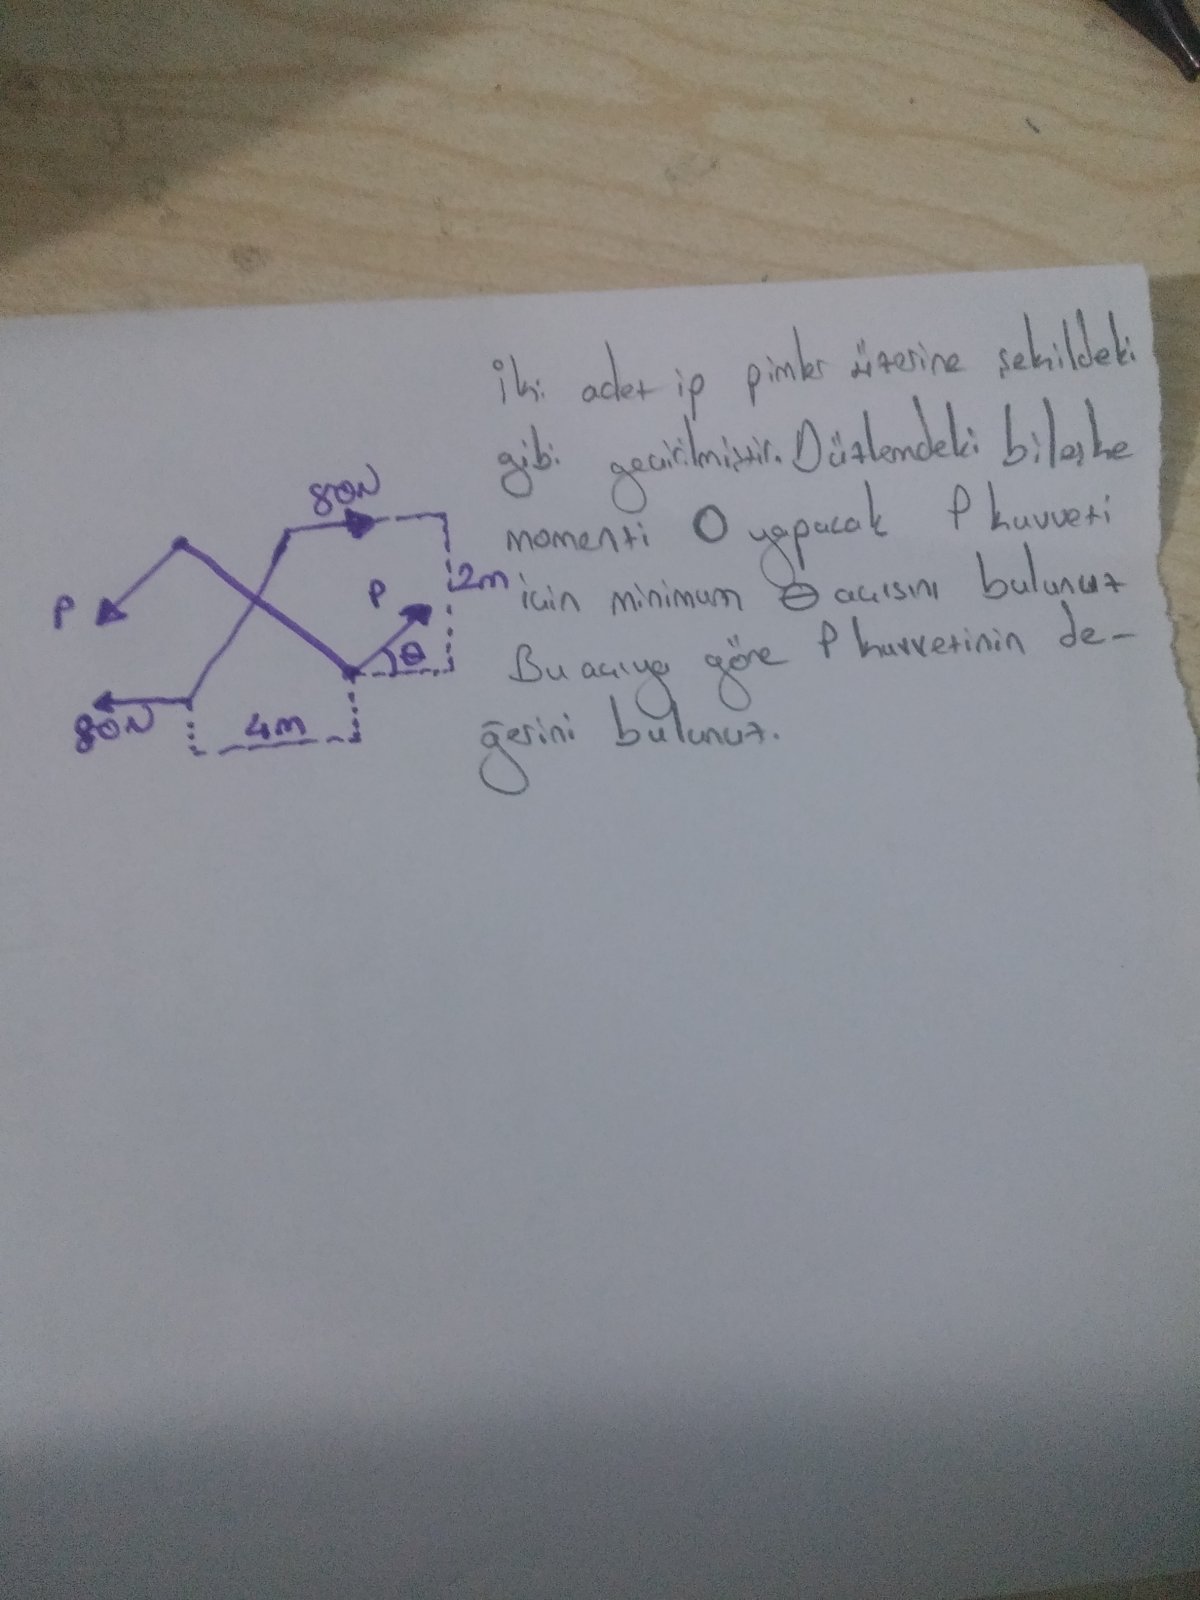 İki adet ip pimler üzerine şekildeki
gibi geçirilmiştir. Düzlemdeki bileşke
momenti 0 yapacak P kuvveti
için minimum θ açısını bulunuz
Bu açıya göre P kuvvetinin de-
ğerini bulunuz.
80N
P
P
2m
θ
80N
4m